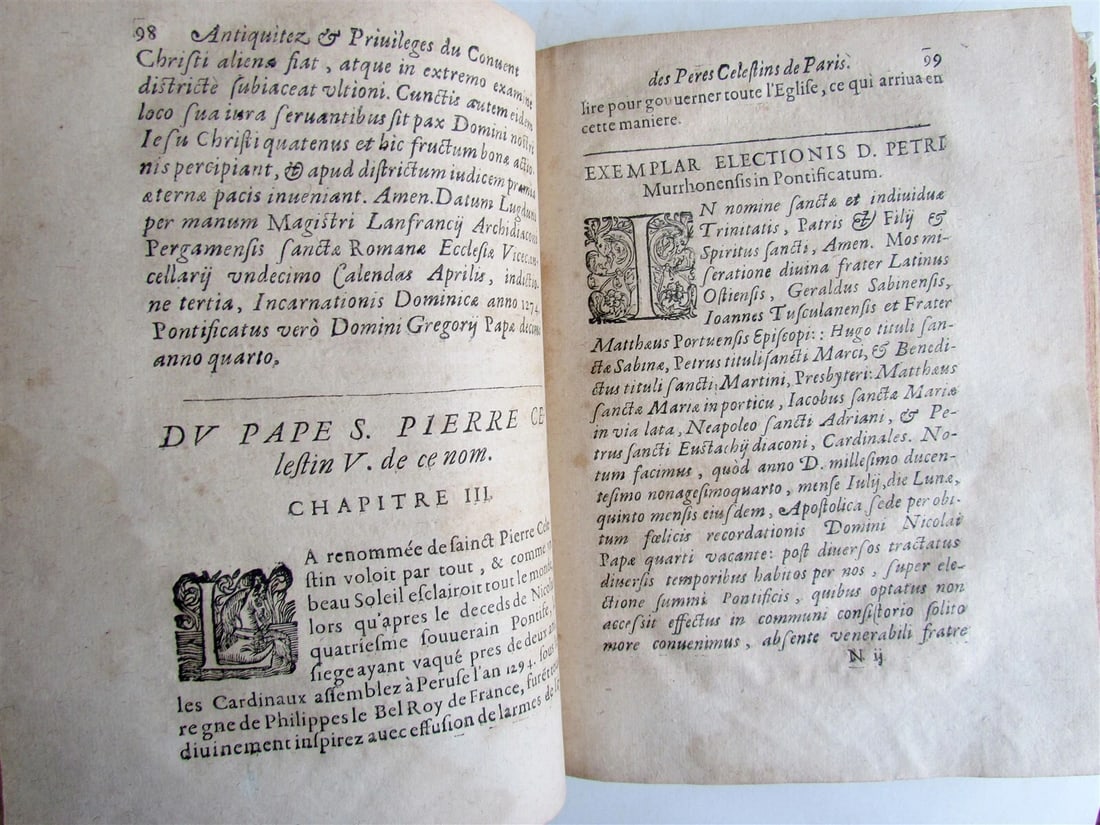 98 Antiquitez & Priuileges du Conuent
Christi aliena fiat, atque in extremo examine
districtè subiaceat vltioni. Cunctis autem eidem
loco sua iura seruantibus sit pax Domini nostri
Iesu Christi quatenus et hic fructum bonæ actio-
nis percipiant, & apud districtum iudicem præmia
æternæ pacis inueniant. Amen. Datum Lugduni
per manum Magistri Lanfrancij Archidiaconi
Pergamensis sanctæ Romanæ Ecclesiæ Vicecan-
cellarij vndecimo Calendas Aprilis, indictio-
ne tertia, Incarnationis Dominicæ anno 1274
Pontificatus verò Domini Gregorij Papæ decimi
anno quarto.
DV PAPE S. PIERRE CE-
lestin V. de ce nom.
CHAPITRE III.
LA renommée de sainct Pierre Cele-
stin voloit par tout, & comme vn
beau Soleil esclairoit tout le monde,
lors qu'apres le deceds de Nicolas
quatriesme souuerain Pontife,
siege ayant vaqué pres de deux ans
les Cardinaux assemblez à Peruse l'an 1294. sous
regne de Philippes le Bel Roy de France, furent
diuinement inspirez auec effusion de larmes de
des Peres Celestins de Paris. 99
lire pour gouuerner toute l'Eglise, ce qui arriua en
cette maniere.
EXEMPLAR ELECTIONIS D. PETRI
Murrhonensis in Pontificatum.
IN nomine sanctæ et indiuiduæ
Trinitatis, Patris & Filij &
Spiritus sancti, Amen. Mos mi-
seratione diuina frater Latinus
Ostiensis, Geraldus Sabinensis,
Ioannes Tusculanensis et Frater
Matthæus Portuensis Episcopi: Hugo tituli san-
ctæ Sabinæ, Petrus tituli sancti Marci, & Benedi-
ctus tituli sancti Martini, Presbyteri: Matthæus
sanctæ Mariæ in porticu, Iacobus sanctæ Mariæ
in via lata, Neapoleo sancti Adriani, & Pe-
trus sancti Eustachij diaconi, Cardinales. No-
tum facimus, quòd anno D. millesimo ducen-
tesimo nonagesimoquarto, mense Iulij, die Lunæ,
quinto mensis eiusdem, Apostolica sede per obi-
tum fœlicis recordationis Domini Nicolai
Papæ quarti vacante: post diuersos tractatus
diuersis temporibus habitos per nos, super ele-
ctione summi Pontificis, quibus optatus non
accessit effectus in communi consistorio solito
more conuenimus, absente venerabili fratre
N ij